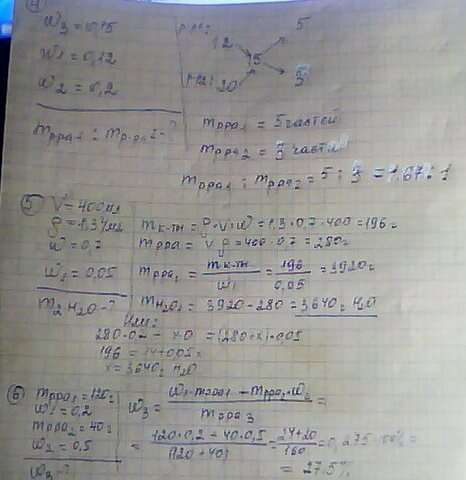 ④
W₃ = 0,15
W₁ = 0,12
W₂ = 0,2
mрра1 : mр-ра2 - ?
р-р1: 12 5
15
р-р2: 20 3
mрра1 = 5 частей
mрра2 = 3 части
mрра1 : mрра2 = 5 : 3 = 1,67 : 1
⑤ V = 400мл
W = 0,7
W₁ = 0,05
m₂ H₂O - ?
mк-ты = ρ·V·W = 1,3·0,7·400 = 196г
mрра = V·ρ = 400·0,7 = 280г
mрра₁ = mк-ты / W₁ = 196 / 0,05 = 3920г
mH₂O₂ = 3920 - 280 = 3640г H₂O
Или:
280·0,7 - x·0 = (280+x)·0,05
196 = 14+0,05x
x = 3640г H₂O
⑥ mрра1 = 120г
W₁ = 0,2
mрра2 = 40г
W₂ = 0,5
W₃ - ?
W₃ = W₁·mрра1 + mрра2·W₂ / mрра3 =
= 120·0,2 + 40·0,5 / (120 + 40) = 24+20 / 160 = 0,275·100% =
= 27,5%